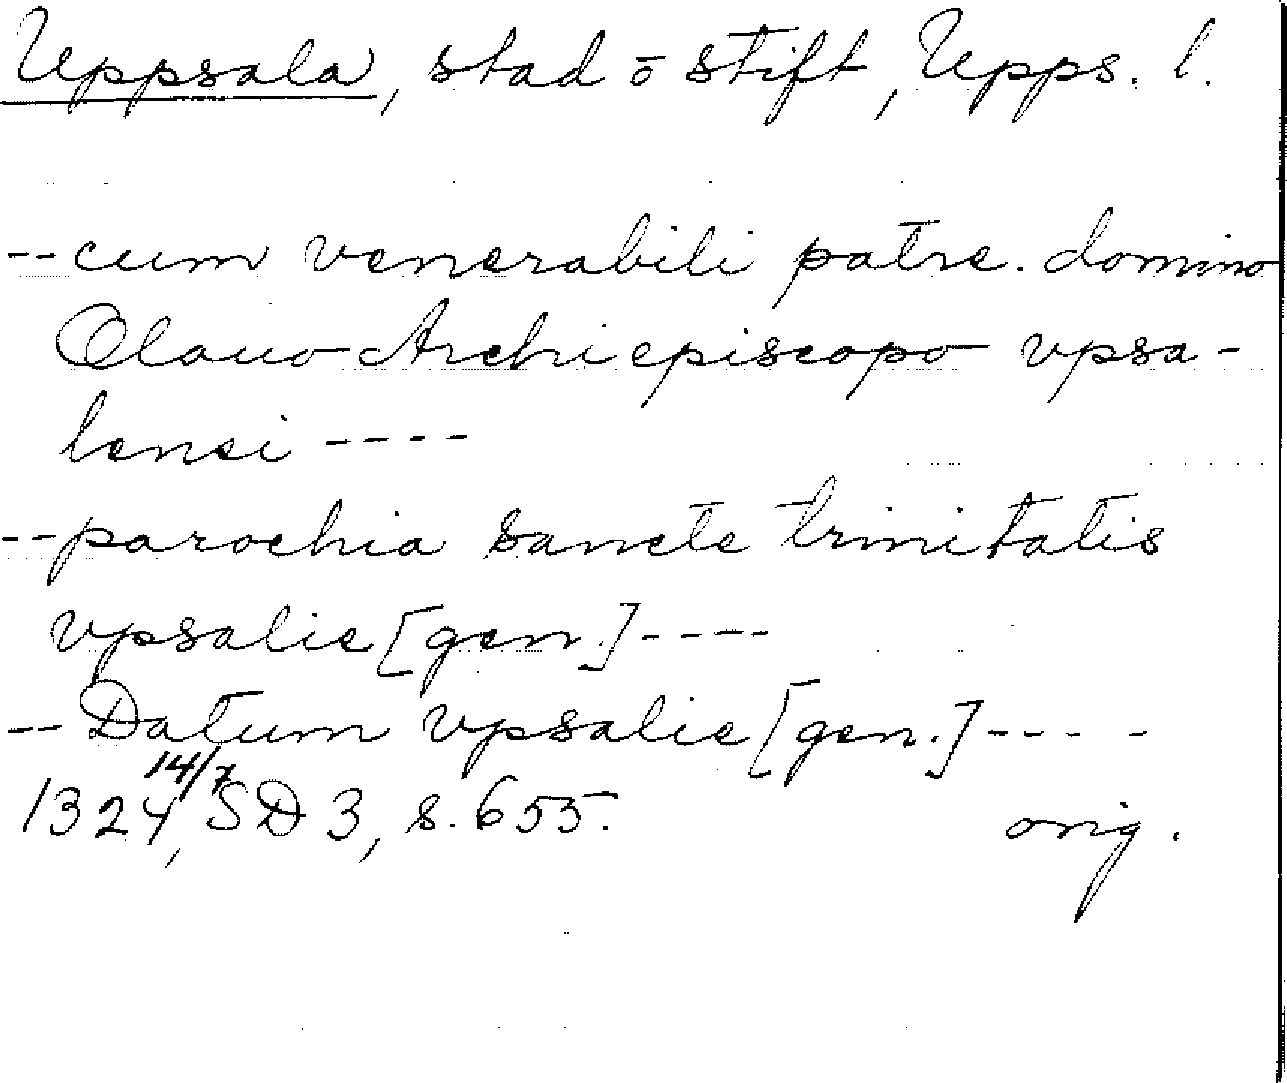 Uppsala, stad o stift, Upps. l.
-- cum venerabili patre. domino
Olauo Archiepiscopo vpsa-
lensi ----
-- parochia sancte trinitatis
vpsalie [gen.] ----
-- Datum vpsalie [gen.] ----
14/7
1324, SD 3, s. 655. orig.